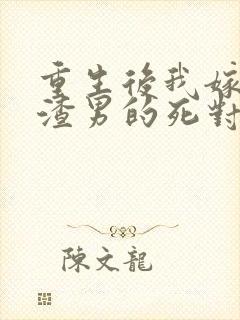 重生後我嫁
渣男的死對
陳文龍